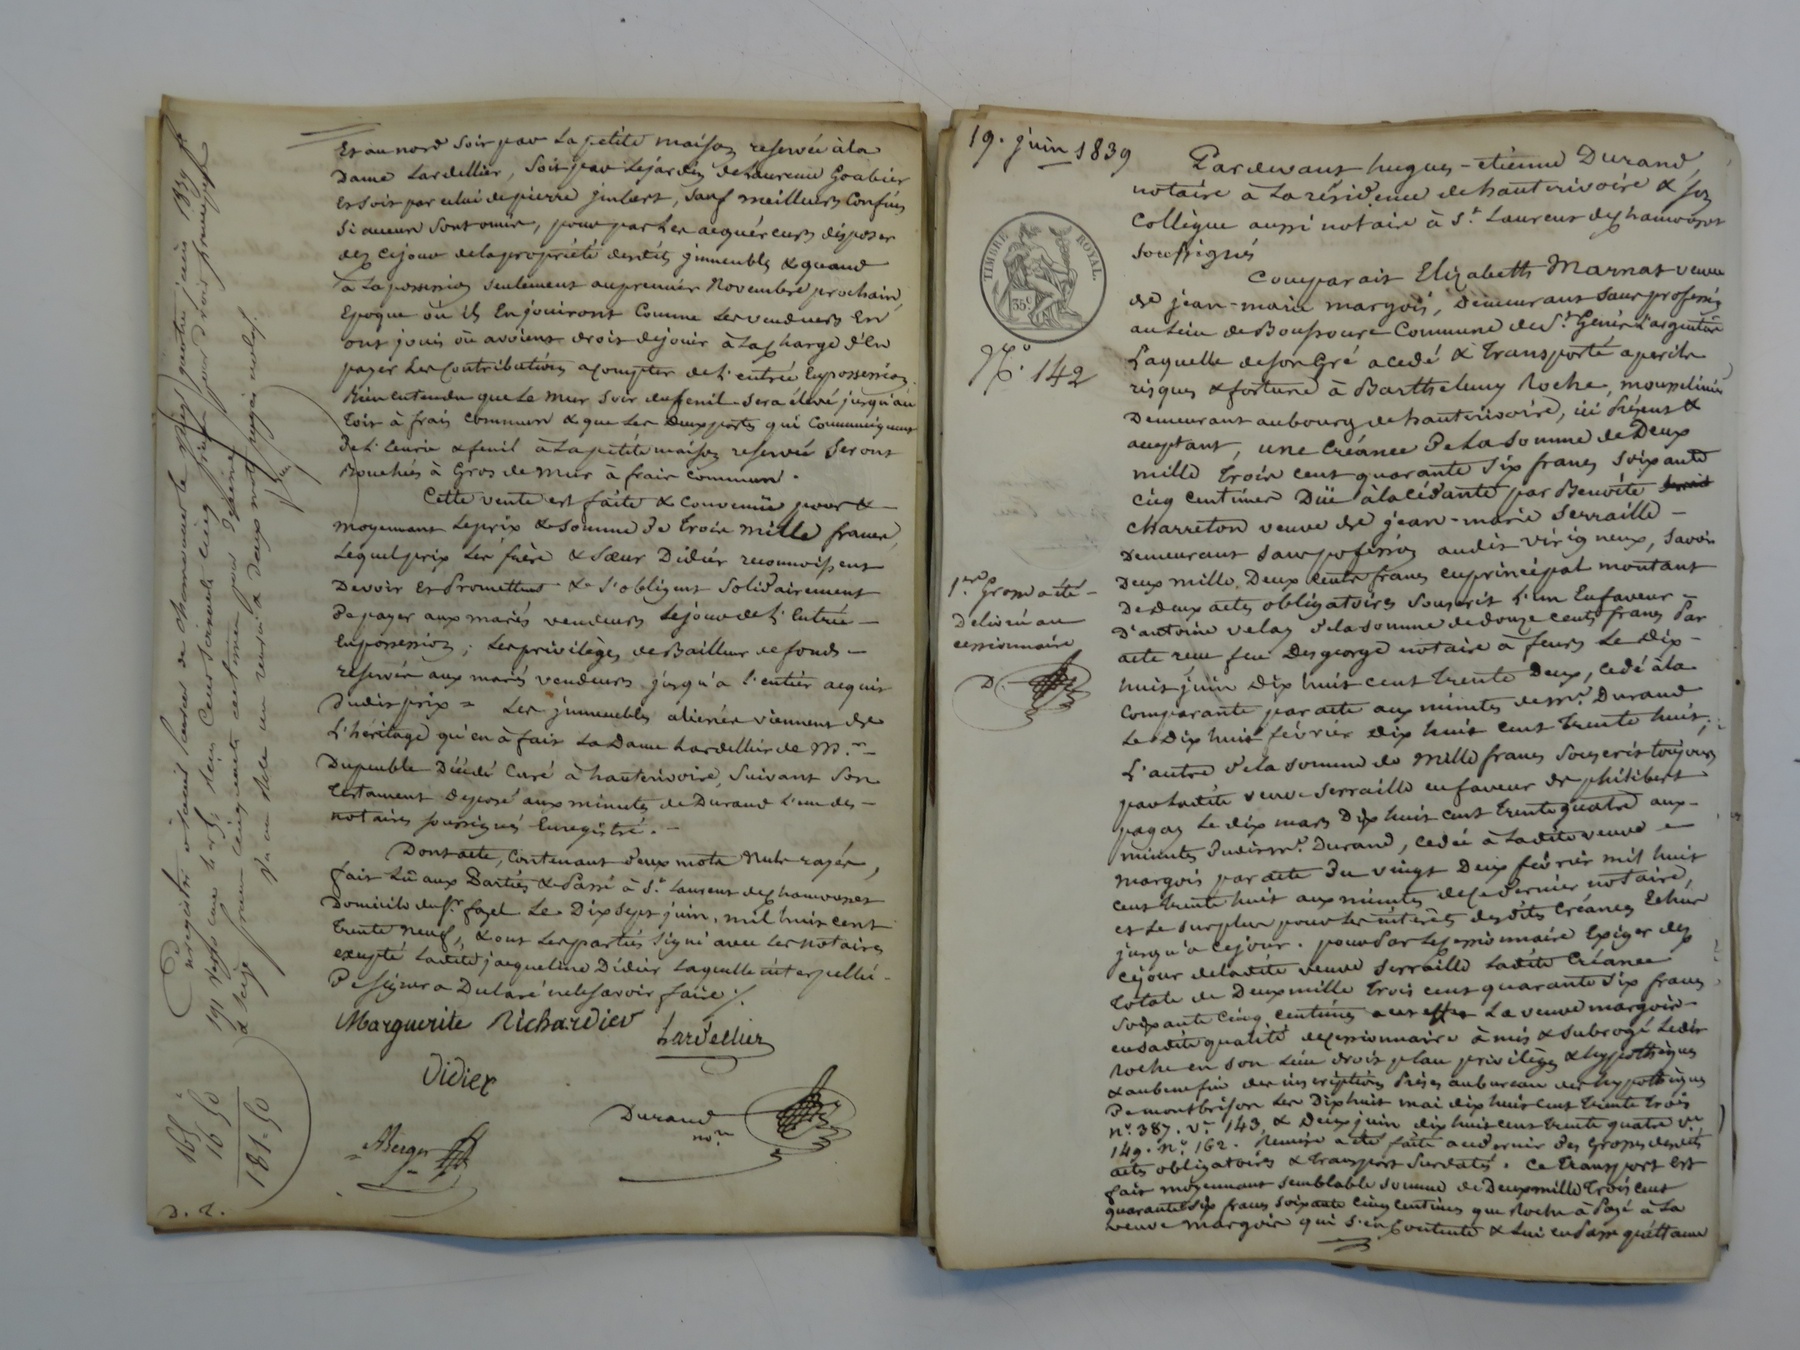 Et au nord soit par la petite maison reservée à la
Dame Lardellier, soit par le jardin de Laurent Goubier
et soit par celui de pierre jinbert, sauf meilleurs Confins
Si aucun sont omis, pour par les acquéreurs disposer
des cejour de la propriété desdits jmmeubles & quand
à la possession seulement au premier Novembre prochain,
Epoque où ils En jouiront Comme les vendeurs En
ont joui ou avoient droit dejouir à la charge d'En
payer les Contributions acompter de l'entrée En possession.
Bien entendu que le mur soir dufenil sera élevé jusqu'au
toit à frais commun & que les deux portes qui Communiquent
de l'Ecurie & fenil à la petite maison reservée seront
Bouchées à Gros de mur à frais commun.
Cette vente est faite & Convenue pour &
moyennant le prix & somme de trois mille francs,
Lequel prix les frère & sœur Didier reconnoissent
Devoir et Promettent & s'obligent solidairement
de payer aux mariés vendeurs le jour de l'Entrée
En possession; les privilèges de Bailleur de fonds
reservés aux mariés vendeurs jusqu'a l'entier acquit
dudit prix = les jmmeubles aliénés viennent de
L'héritage qu'en à fait la Dame Lardellier de M.r
Dupeuble Décédé Curé à hauterivoire, suivant son
testament Déposé aux minutes de Durand l'un des
notaires soussignés Enregistré.
Dont acte, Contenant deux mots Nuls rayés,
fait Lû aux Parties & Passé à S.t Laurent de chamousset
Domicile du Sr. fayel le Dix sept juin, mil huit cent
trente neuf, & ont les parties signé avec les notaires
excepté ladite jacqueline Didier laquelle interpellée
De signer a Declaré ne le savoir faire ./.
Marguerite Richardier
Lardellier
Didier
Durand
no.re
Berger
Enregistré à Saint Laurent de chamousset le vingt quatre juin 1839 fo
191 Reçu cent soixante cinq francs pour droit principal
& seize francs cinquante centimes pour dixième
Vu au Role un renvoi & deux mots rayés nuls.
165
16 50
181.50
D. 2.
19. juin 1839
TIMBRE ROYAL.
35c
No. 142
1.ere Grosse a été
délivrée au
cessionnaire
D.
Pardevant hugues-etienne Durand,
notaire à la résidence de hauterivoire & son
Collègue aussi notaire à S.t Laurent de chamousset
soussignés
Comparait Elizabeth Marnat veuve
de jean-marie margois, Demeurant sans profession
au lieu de Boussoure Commune de S.t Genis L'argentière
Laquelle de son Gré a cedé & transporté a perils
risques & fortune à Barthelemy Roche, mousselinier
Demeurant aubourg de hauterivoire, ici Présent &
acceptant, une Créance de la somme de Deux
mille trois cent quarante six francs soixante
cinq centimes Düe à la cédante par Benoîte
Charreton veuve de jean-marie Serraille
Demeurant sans profession audit virigneux, savoir
Deux mille Deux cents francs en principal montant
de deux actes obligatoires souscrit l'un En faveur
d'antoine velay de la somme de douze cents francs Par
acte reçu feu Desgeorge notaire à feurs Le Dix
huit juin Dix huit cent trente Deux, Cedé à la
Comparante par acte aux minutes de m.r Durand
Le Dix huit février dix huit cent trente huit;
L'autre de la somme de mille francs souscrit toujours
par ladite veuve Serraille en faveur de philibert
pagay le dix mars Dix huit cent trente quatre aux
minutes dudit m.r Durand, Cedée à ladite veuve
margois par acte du vingt Deux février mil huit
cent trente huit aux minutes de ce dernier notaire,
et Le surplus pour les intérêts desdites Créances Echus
jusqu'à ce jour. pour Par le Cessionnaire Exiger des
cejour de ladite veuve Serraille ladite Créance
totale de Deux mille trois cent quarante six francs
soixante cinq centimes a cet effet La veuve margois
en sadite qualité de cessionnaire à mis & subrogé ledit
Roche en son lieu droit place privilèges & hypothèques
& au bénéfice des inscriptions Prises au bureau des hypothèques
De montbrison les Dix huit mai dix huit cent trente trois
n.o 387. v.e 143, & Deux juin dix huit cent trente quatre v.e
149. n.o 162. Remise a été faite au dernier des Grosses desdits
actes obligatoires & transport susdatés. Ce transport est
fait moyennant semblable somme de Deux mille trois cent
quarante six francs soixante cinq centimes que Roche à Payé à La
veuve margois qui s'en Contente & lui en Passe quittance